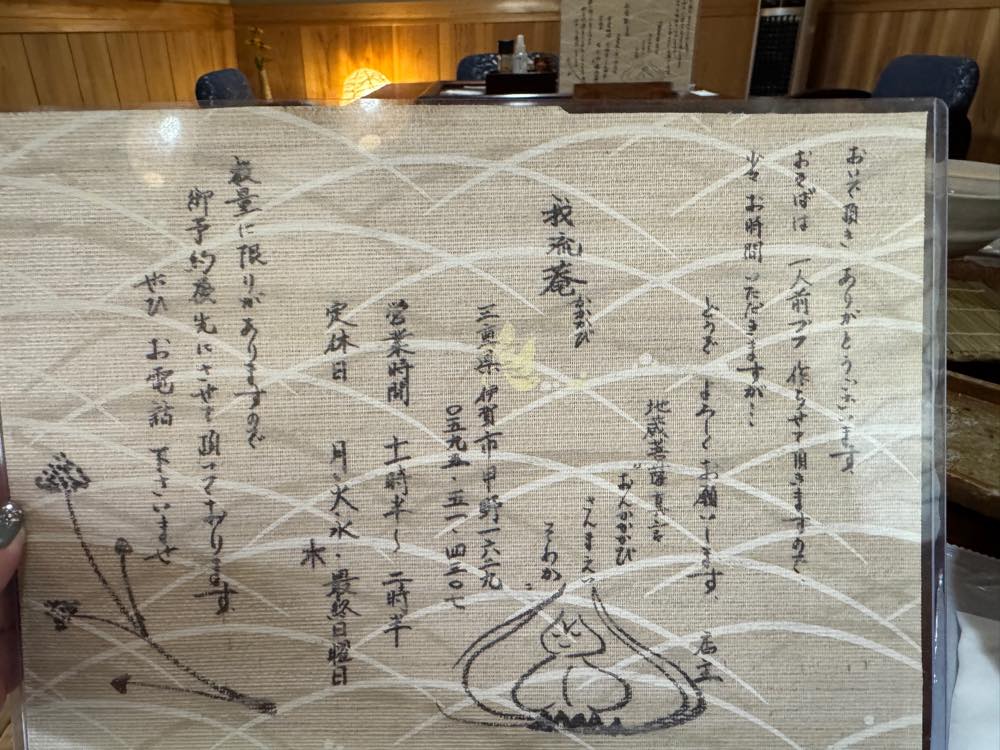 おいで頂き ありがとうございます
おそばは 一人前ずつ 作らせて頂きますので、
少々 お時間いただきますが…
どうぞ よろしくお願いします。
店主
地蔵菩薩真言
おんかかかび
さんまえい
そわか
我流庵 おかび
三重県 伊賀市甲野一六二九
〇五九五・五一・四二〇七
営業時間 十一時半〜 二時半
定休日 月・火水・最終日曜日
木
数量に限りがありますので
御予約優先にさせて頂いております
ぜひ お電話 下さいませ